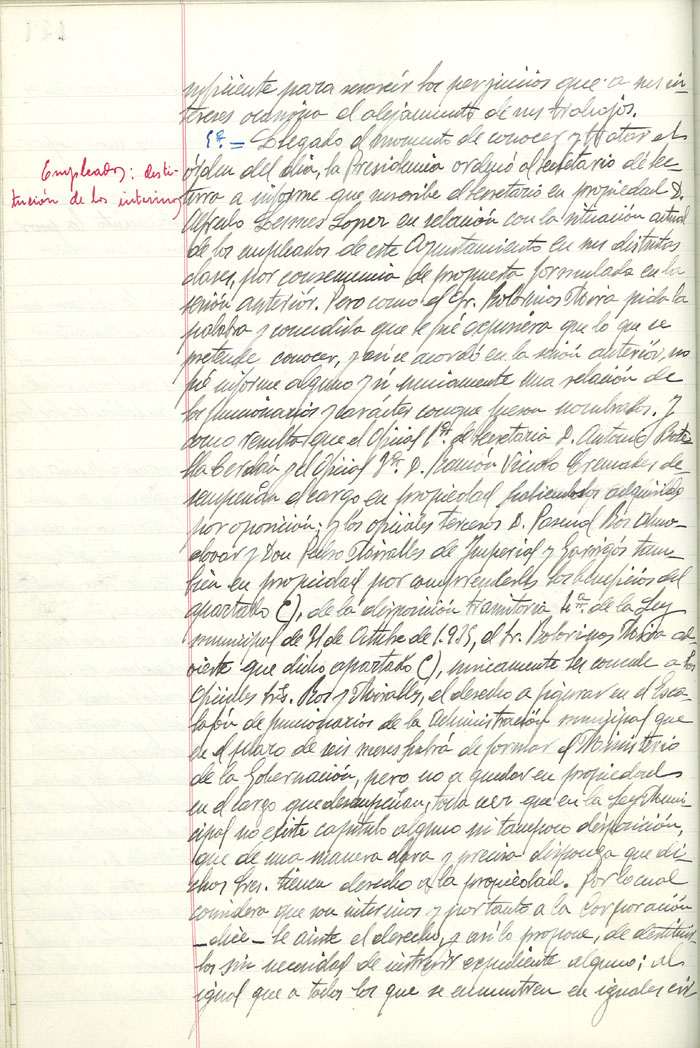 suficiente para resarcir los perjuicios que a sus in-
tereses ocasiona el alejamiento de sus trabajos.
1º.= Llegado el momento de conocer y tratar el
Empleados: desti-
tución de los interinos
órden del día, la Presidencia ordenó al Secretario dé lec-
tura a informe que suscribe el Secretario en propiedad D.
Alfredo Lopez en relación con la situación actual
de los empleados de este Ayuntamiento en sus distintas
clases, por consecuencia de propuesta formulada en la
sesión anterior. Pero como el Sr. Botorinos Mira pida la
palabra y concedida que le fué expusiera que lo que se
pretende conocer, y así se acordó en la sesión anterior, no
fué informe alguno y sí unicamente una relación de
los funcionarios y carácter conque fueron nombrados. Y
como resulta que el Oficial 1º. de Secretaria D. Antonio
Cerdán y el Oficial D. Ramón Vicedo Cremades de-
sempeñan el cargo en propiedad habiendolos adquirido
por oposición; y los oficiales terceros D. Pascual Ros Almo-
dovar y Don Pedro Miralles de Imperial y Garrigós tam-
bien en propiedad por comprenderles los beneficios del
apartado C), de la disposición transitoria 4ª. de la Ley
municipal de 31 de Octubre de 1.935, el Sr. Botorinos Mira ad-
vierte que dicho apartado C), unicamente les concede a los
Oficiales Sres. Ros y Miralles, el derecho a figurar en el Esca-
lafón de funcionarios de la Administración municipal que
en el plazo de seis meses habrá de formar el Ministerio
de la Gobernación, pero no a quedar en propiedad
en el cargo que desempeñan, toda vez que en la Ley Muni-
cipal no existe capitulo alguno ni tampoco disposición,
que de una manera clara y precisa disponga que di-
chos Sres. tienen derecho a la propiedad. Por lo cual
considera que son interinos y por tanto a la Corporación
-dice- le asiste el derecho, y así lo propone, de destituir-
los sin necesidad de instruir expediente alguno; al
igual que a todos los que se encuentren en iguales cir-